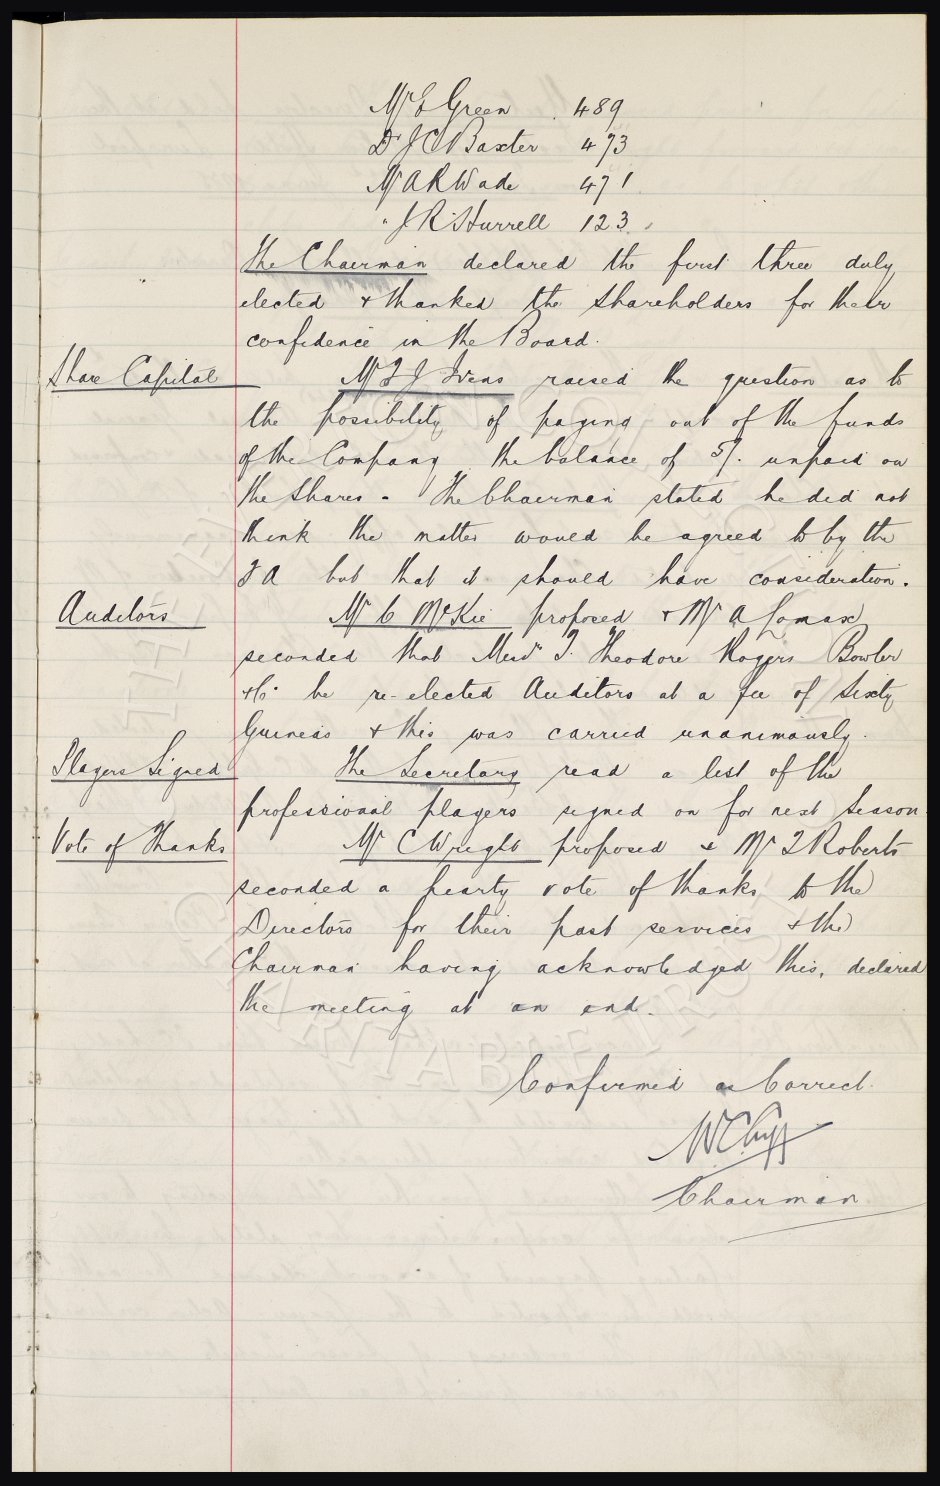 Mr E Green 489
Dr J C Baxter 473
Mr A R Wade 471
" J R Hurrell 123
The Chairman declared the first three duly
elected & thanked the Shareholders for their
confidence in the Board.
Share Capital Mr F J Ivens raised the question as to
the possibility of paying out of the funds
of the Company the balance of 5/- unpaid on
the Shares - The Chairman stated he did not
think the matter would be agreed to by the
F A but that it should have consideration.
Auditors Mr C McKie proposed & Mr A Lomax
seconded that Messrs T. Theodore Rogers Bowler
& Co be re-elected Auditors at a fee of Sixty
Guineas & this was carried unanimously.
Players Signed The Secretary read a list of the
professional players signed on for next Season.
Vote of Thanks Mr C Wright proposed & Mr T Roberts
seconded a hearty vote of thanks to the
Directors for their past services & the
Chairman having acknowledged this, declared
the meeting at an end.
Confirmed as Correct.
W C Cuff
Chairman
CHARITABLE TRUST